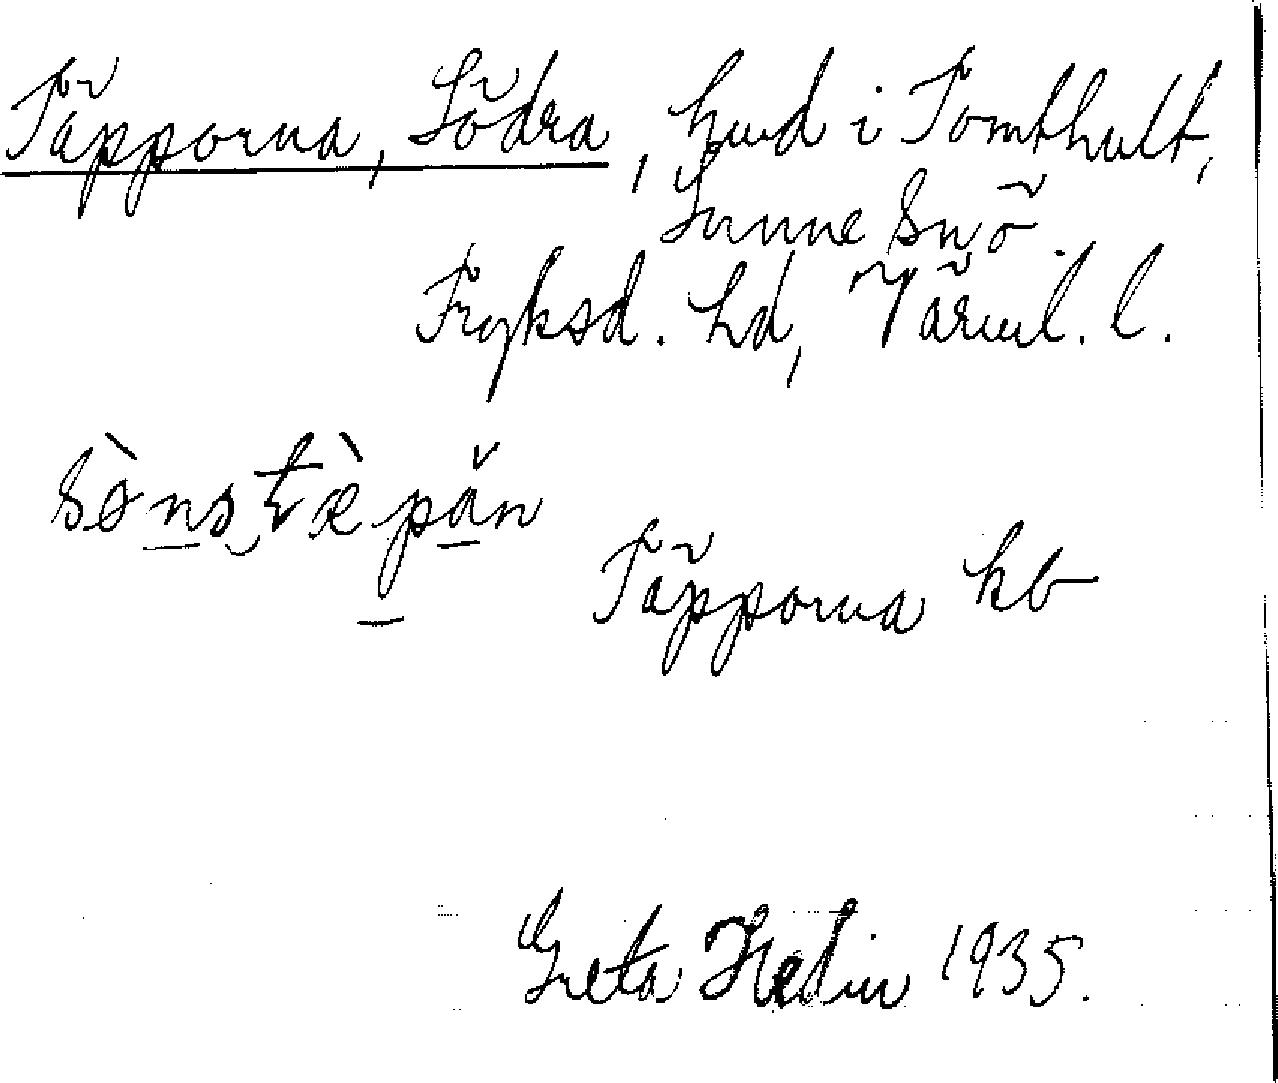 Täpporna, Södra, hmd i Tomthult,
Sunne snö.
Fryksd. hd, Värml. l.
sὸnstæ̀păn
Täpporna kb
Greta Hedin 1935.